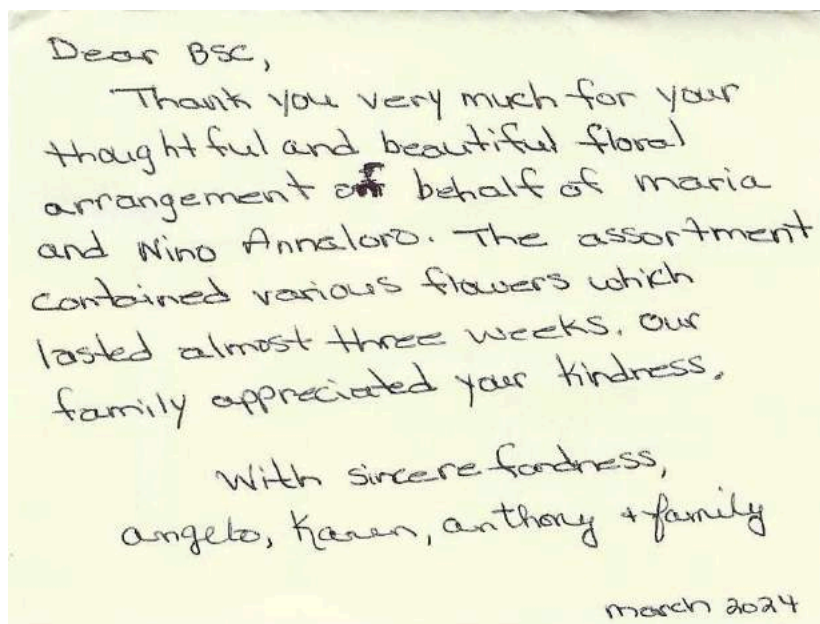 Dear BSC,
Thank you very much for your
thoughtful and beautiful floral
arrangement of behalf of maria
and Nino Annaloro. The assortment
contained various flowers which
lasted almost three weeks. Our
family appreciated your kindness.
With sincere fondness,
angelo, Karen, anthony + family
march 2024